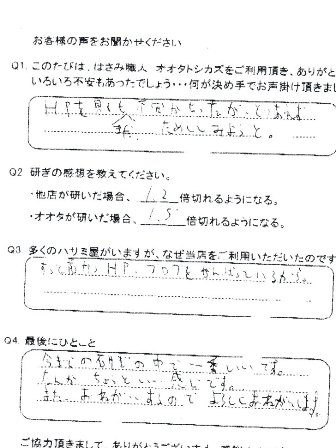 お客様の声をお聞かせください
Q1. このたびは、はさみ職人 オオタトシカズをご利用頂き、ありがと
いろいろ不安もあったでしょう・・・何が決め手でお声掛け頂きまし
HPを
ためしてみようと。
Q2 研ぎの感想を教えてください。
・他店が研いだ場合、 1.2 倍切れるようになる。
・オオタが研いだ場合、 1.5 倍切れるようになる。
Q3. 多くのハサミ屋がいますが、なぜ当店をご利用いただいたのです
HP、ブログをがんばっているから。
Q4. 最後にひとこと
今までの研ぎの中で一番いいです。
なんか ちょっといい感じです。
また おねがいするので よろしくおねがいします
ご協力頂きまして、ありがとうございます。